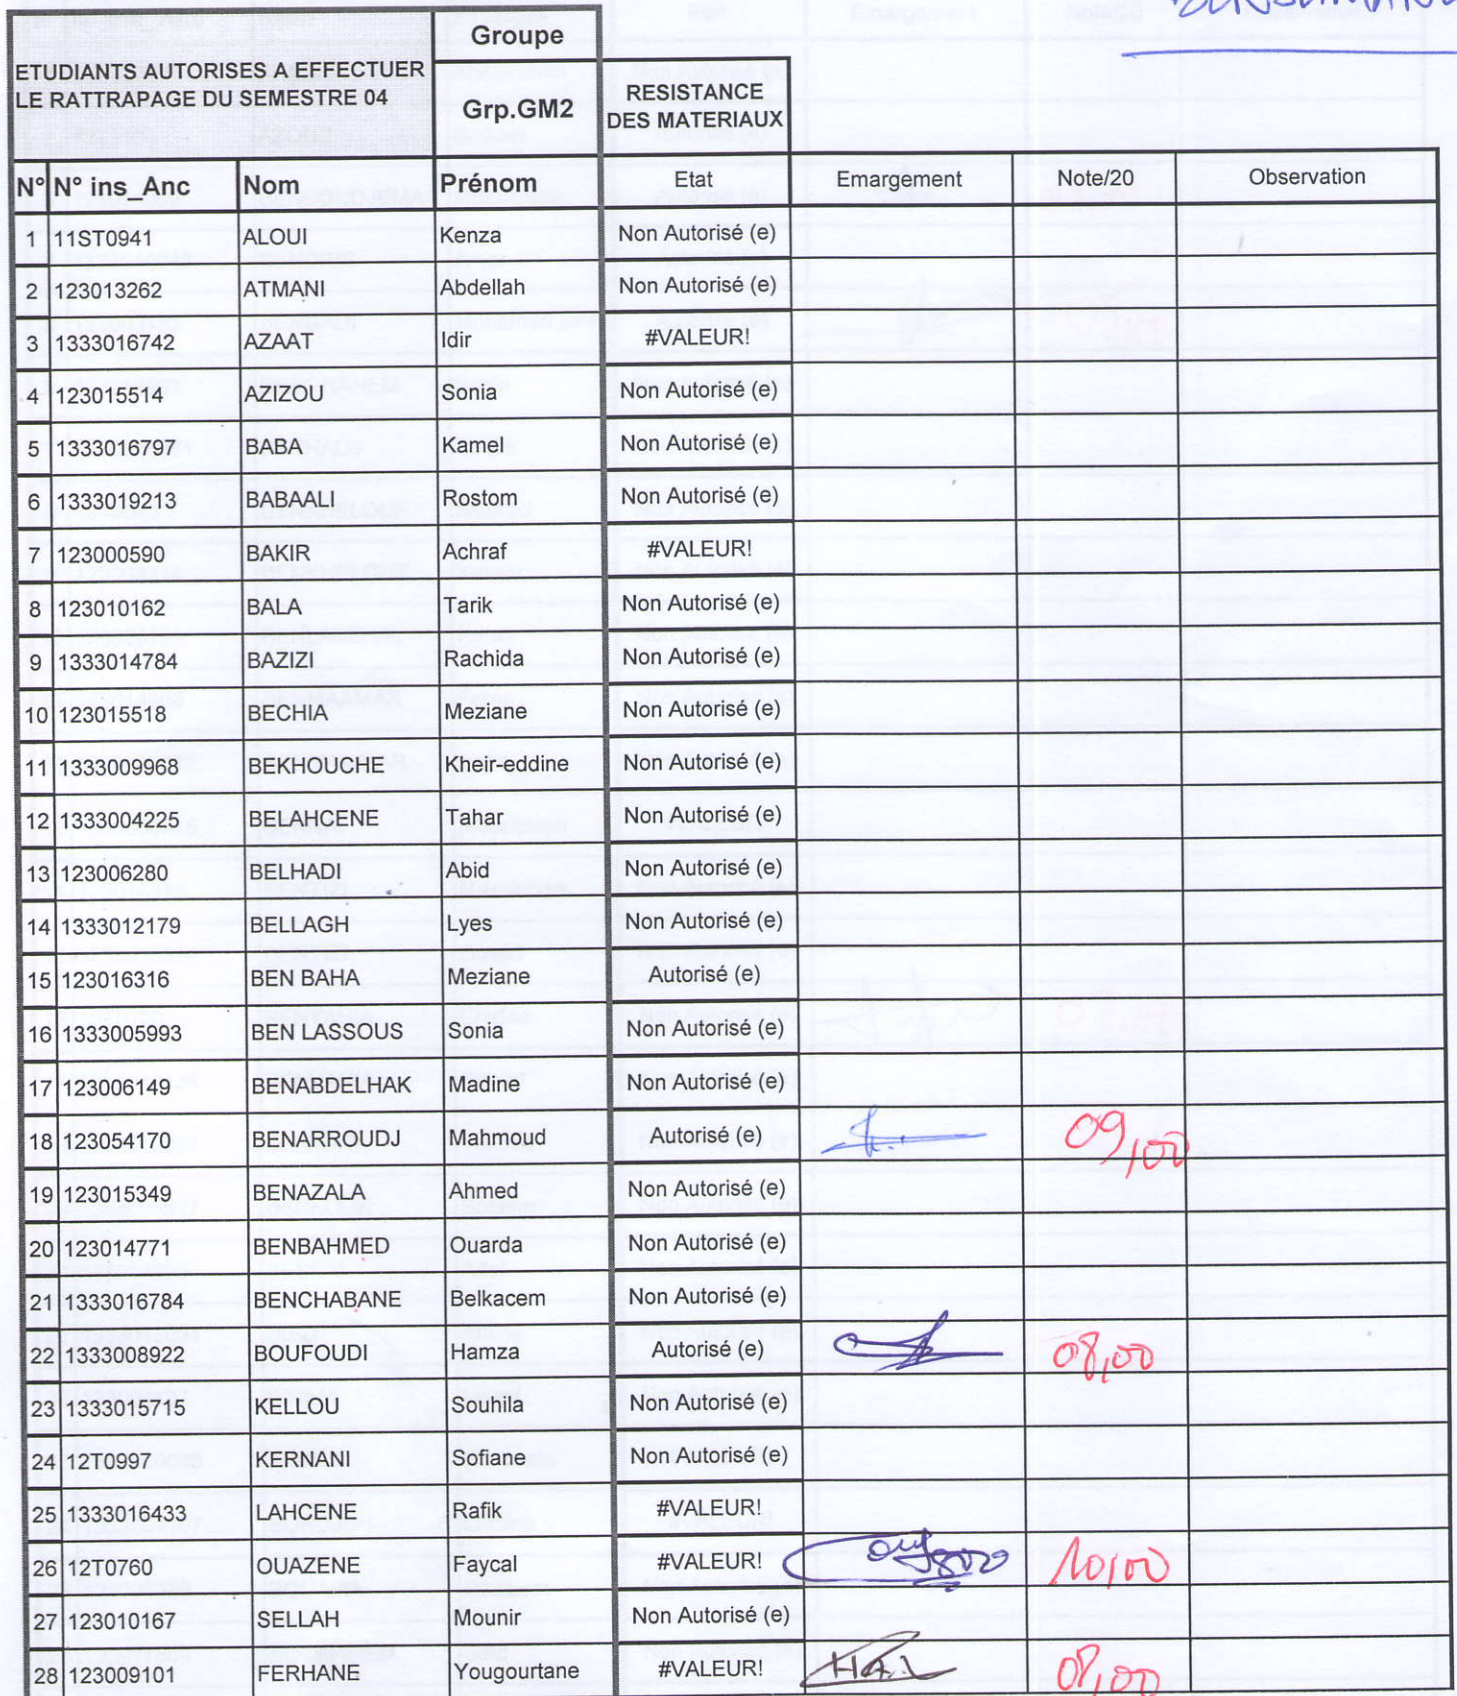 Groupe
ETUDIANTS AUTORISES A EFFECTUER
LE RATTRAPAGE DU SEMESTRE 04
Grp.GM2
RESISTANCE
DES MATERIAUX
N° N° ins_Anc Nom Prénom Etat Emargement Note/20 Observation
1 11ST0941 ALOUI Kenza Non Autorisé (e)
2 123013262 ATMANI Abdellah Non Autorisé (e)
3 1333016742 AZAAT Idir #VALEUR!
4 123015514 AZIZOU Sonia Non Autorisé (e)
5 1333016797 BABA Kamel Non Autorisé (e)
6 1333019213 BABAALI Rostom Non Autorisé (e)
7 123000590 BAKIR Achraf #VALEUR!
8 123010162 BALA Tarik Non Autorisé (e)
9 1333014784 BAZIZI Rachida Non Autorisé (e)
10 123015518 BECHIA Meziane Non Autorisé (e)
11 1333009968 BEKHOUCHE Kheir-eddine Non Autorisé (e)
12 1333004225 BELAHCENE Tahar Non Autorisé (e)
13 123006280 BELHADI Abid Non Autorisé (e)
14 1333012179 BELLAGH Lyes Non Autorisé (e)
15 123016316 BEN BAHA Meziane Autorisé (e)
16 1333005993 BEN LASSOUS Sonia Non Autorisé (e)
17 123006149 BENABDELHAK Madine Non Autorisé (e)
18 123054170 BENARROUDJ Mahmoud Autorisé (e) 09,00
19 123015349 BENAZALA Ahmed Non Autorisé (e)
20 123014771 BENBAHMED Ouarda Non Autorisé (e)
21 1333016784 BENCHABANE Belkacem Non Autorisé (e)
22 1333008922 BOUFOUDI Hamza Autorisé (e) 08,00
23 1333015715 KELLOU Souhila Non Autorisé (e)
24 12T0997 KERNANI Sofiane Non Autorisé (e)
25 1333016433 LAHCENE Rafik #VALEUR!
26 12T0760 OUAZENE Faycal #VALEUR! 10,00
27 123010167 SELLAH Mounir Non Autorisé (e)
28 123009101 FERHANE Yougourtane #VALEUR! 08,00